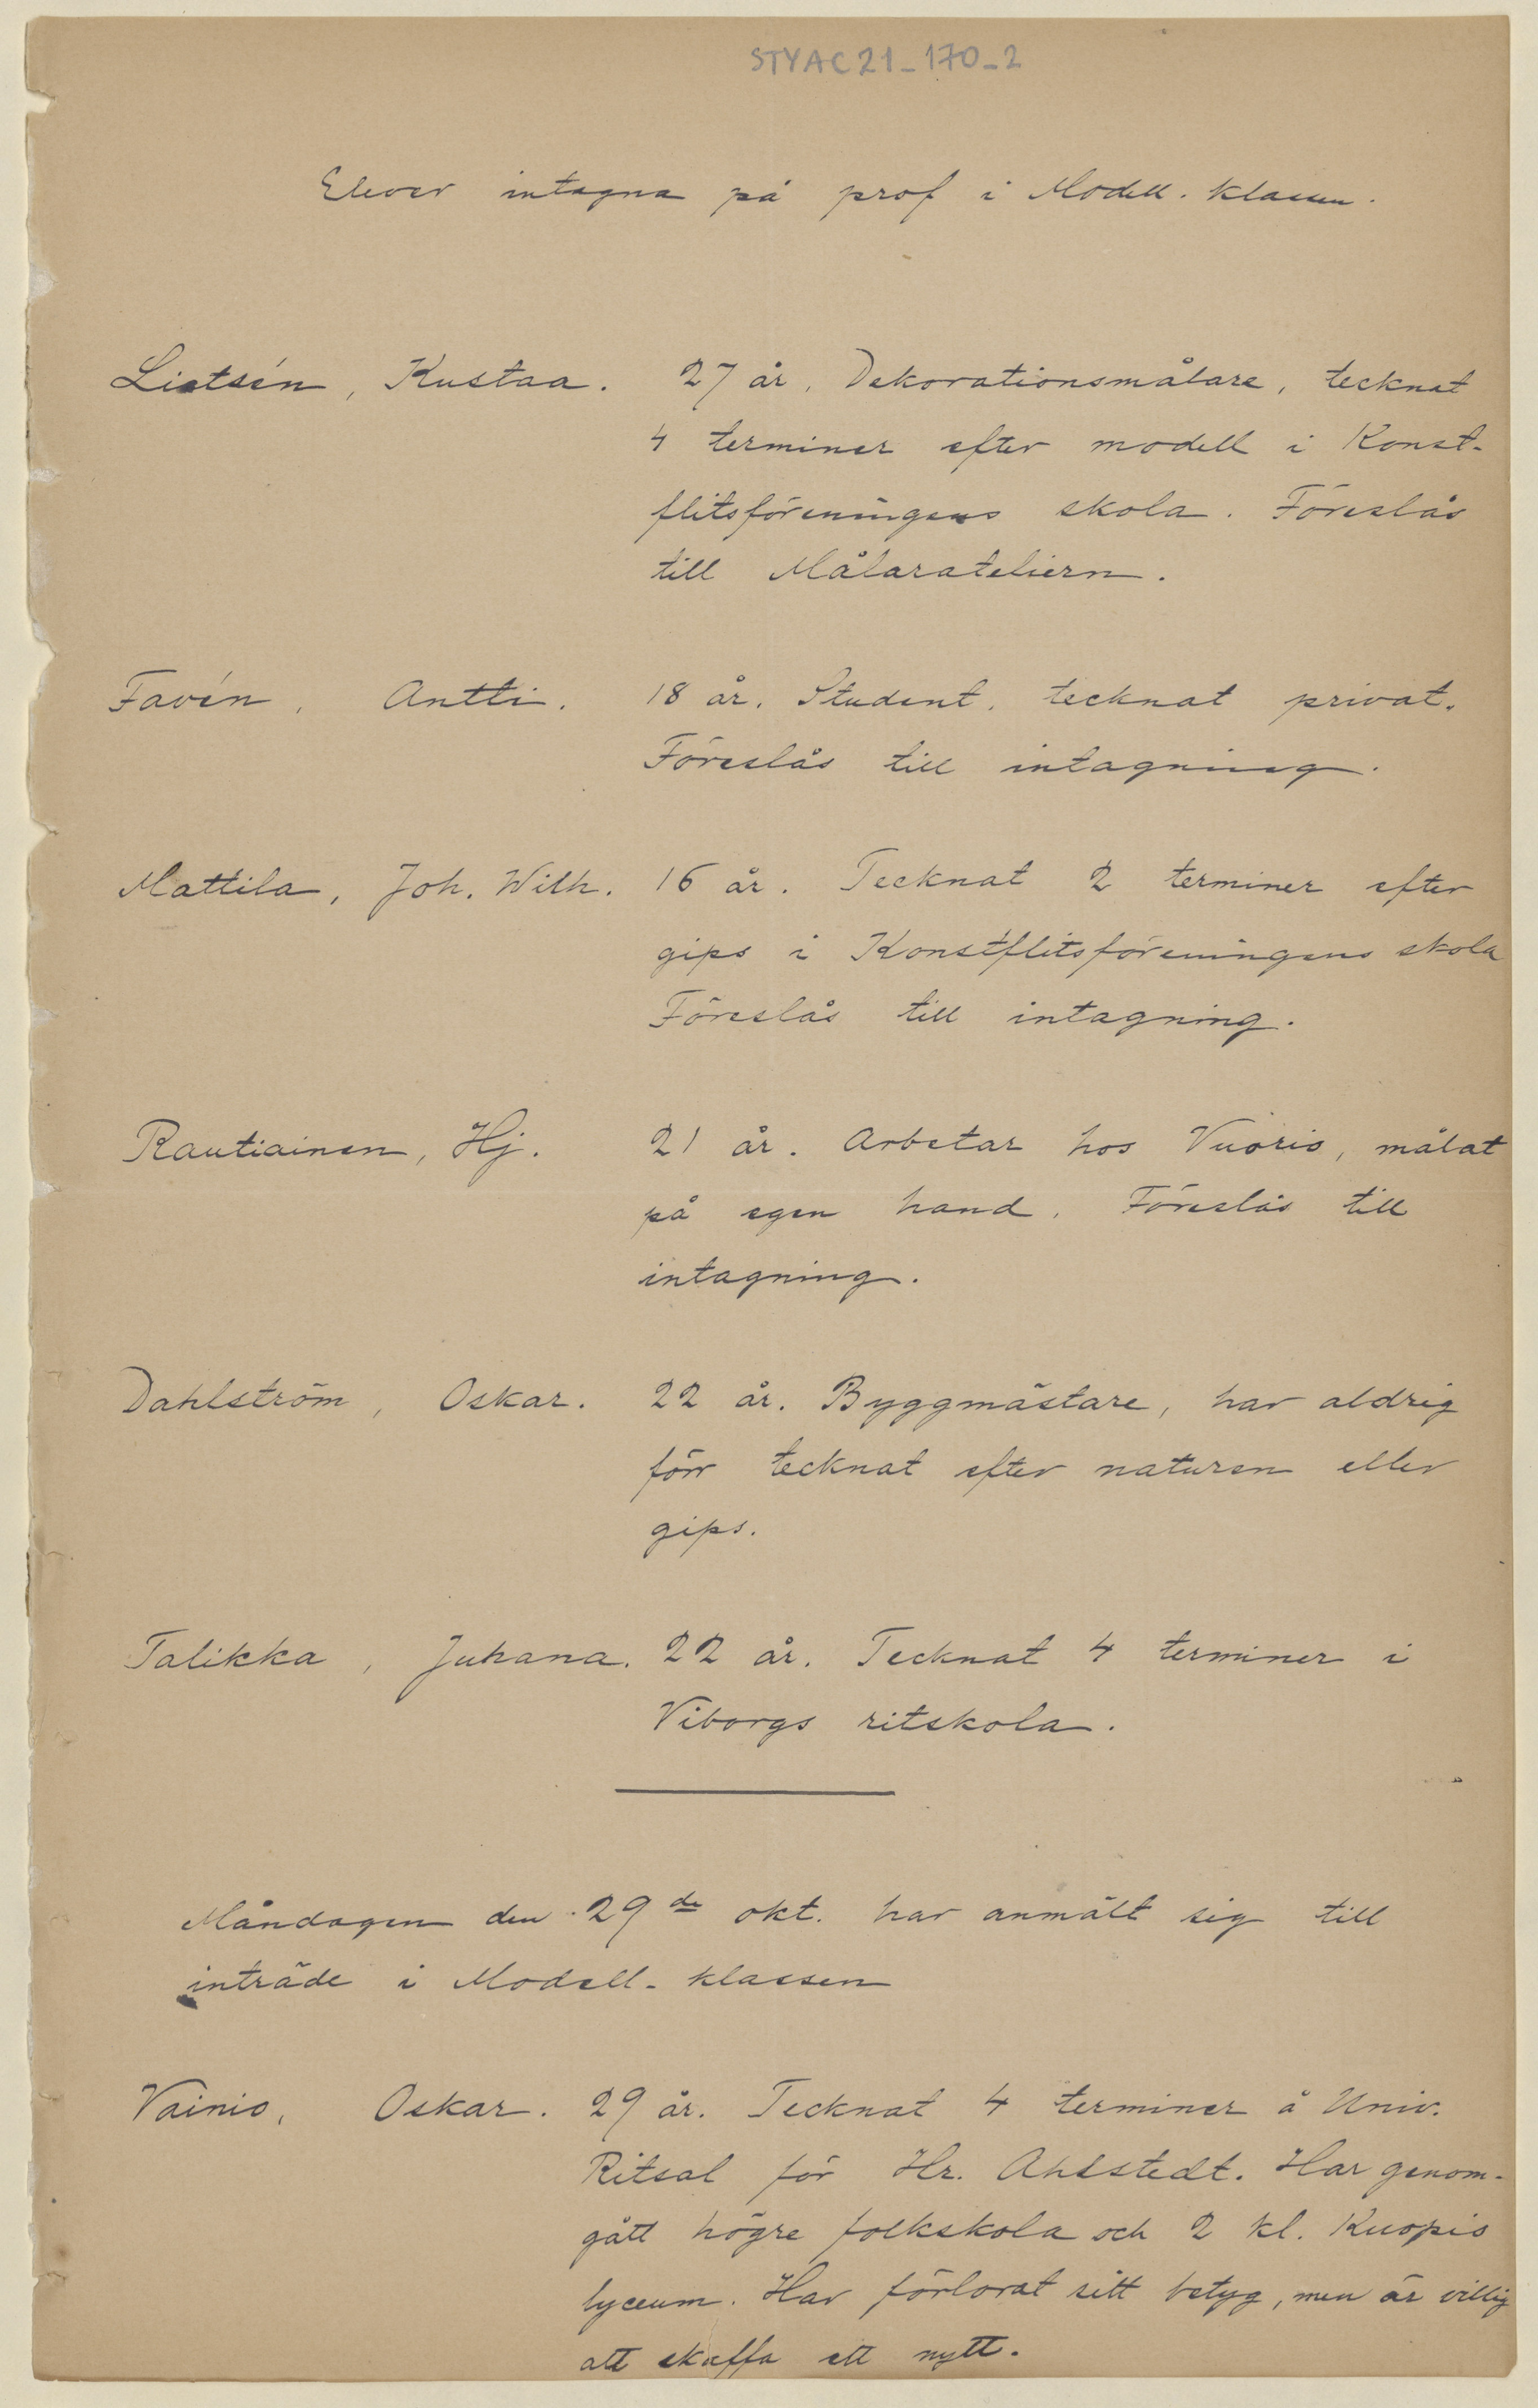 STYAC21_170_2
Elever intagna på prof i Modell. klassen.
Liatsén, Kustaa. 27 år, Dekorationsmålare, tecknat
4 terminer efter modell i Konst-
flitsföreningens skola. Föreslås
till Målarateliern.
Favén, Antti. 18 år. Student, tecknat privat.
Föreslås till intagning.
Mattila, Joh. Wilh. 16 år. Tecknat 2 terminer efter
gips i Konstflitsföreningens skola
Föreslås till intagning.
Rautiainen, Hj. 21 år. Arbetar hos Vuorio, målat
på egen hand. Föreslås till
intagning.
Dahlström, Oskar. 22 år. Byggmästare, har aldrig
förr tecknat efter naturen eller
gips.
Talikka, Juhana. 22 år. Tecknat 4 terminer i
Viborgs ritskola.
Måndagen den 29de okt. har anmält sig till
inträde i Modell-klassen
Vainio, Oskar. 29 år. Tecknat 4 terminer å Univ.
Ritsal för Hr. Ahlstedt. Har genom-
gått högre folkskola och 2 kl. Kuopio
lyceum. Har förlorat sitt betyg, men är villig
att skaffa ett nytt.